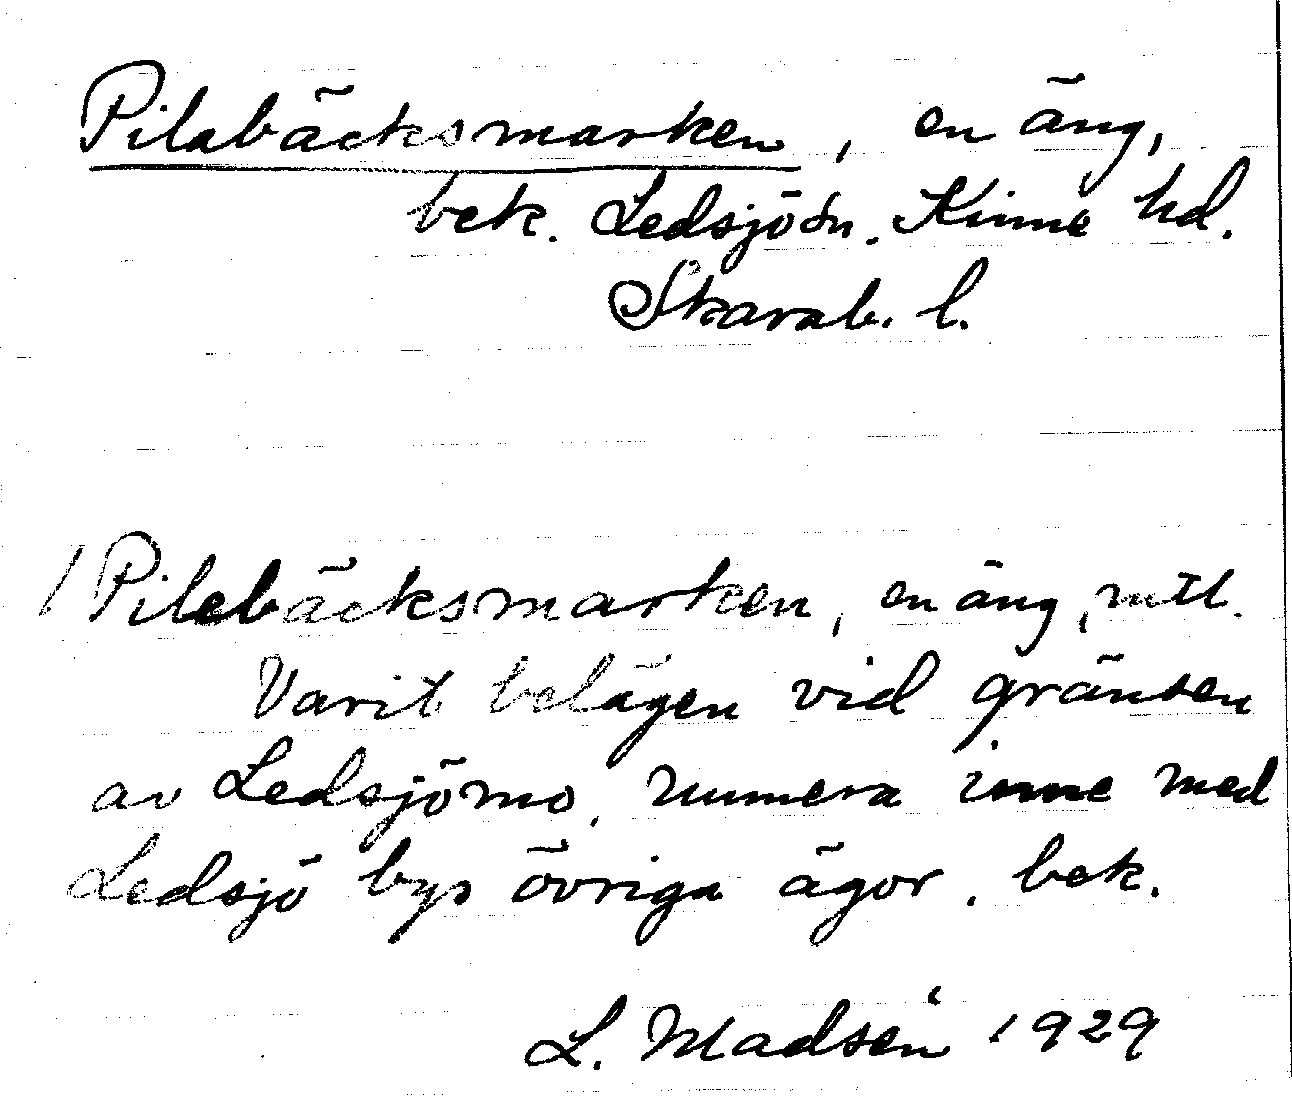 Pilabäcksmarken, en äng,
bek. Ledsjö sn. Kinne hd.
Skarab. l.
1 Pilebäcksmarken, en äng, mtl.
Varit belägen vid gränsen
av Ledsjömo, numera inne med
Ledsjö bys övriga ägor. bek.
L. Madsén 1929